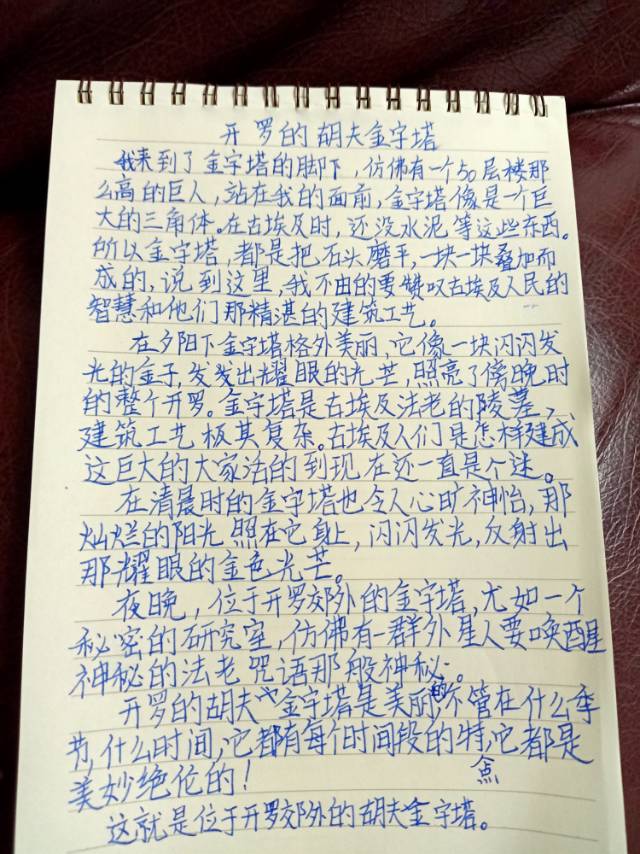 开罗的胡夫金字塔
我来到了金字塔的脚下，仿佛有一个50层楼那
么高的巨人，站在我的面前，金字塔像是一个巨
大的三角体。在古埃及时，还没水泥，等这些东西。
所以金字塔，都是把石头磨平，一块一块叠加而
成的，说到这里，我不由的要赞叹古埃及人民的
智慧和他们那精湛的建筑工艺。
在夕阳下金字塔格外美丽，它像一块闪闪发
光的金子，发发出耀眼的光芒，照亮了傍晚时
的整个开罗。金字塔是古埃及法老的陵墓，
建筑工艺极其复杂。古埃及人们是怎样建成
这巨大的大家活的到现在还一直是个迷。
在清晨时的金字塔也令人心旷神怡，那
灿烂的阳光照在它身上，闪闪发光，反射出
那耀眼的金色光芒。
夜晚，位于开罗郊外的金字塔，尤如一个
秘密的研究室，仿佛有一群外星人要唤醒
神秘的法老咒语那般神秘。
开罗的胡夫金字塔是美丽的，不管在什么季
节，什么时间，它都有每个时间段的特点，它都是
美妙绝伦的！
这就是位于开罗郊外的胡夫金字塔。